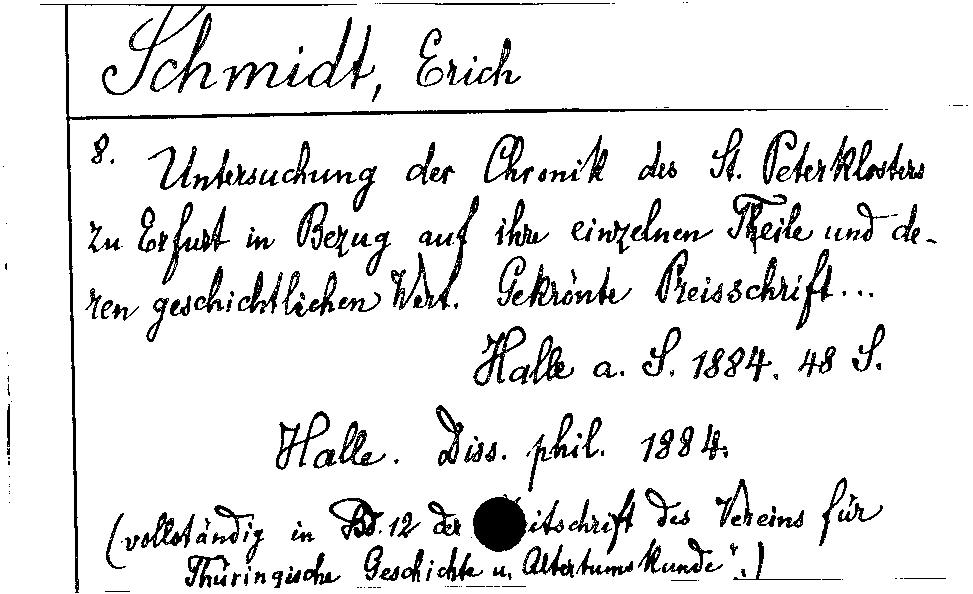 Schmidt, Erich
8. Untersuchung der Chronik des St. Peterklosters
zu Erfurt in Bezug auf ihre einzelnen Theile und de-
ren geschichtlichen Wert. Gekrönte Preisschrift...
Halle a. S. 1884. 48 S.
Halle. Diss. phil. 1884.
(vollständig in Bd. 12 der eitschrift des Vereins für
Thüringische Geschichte u. Altertumskunde".)